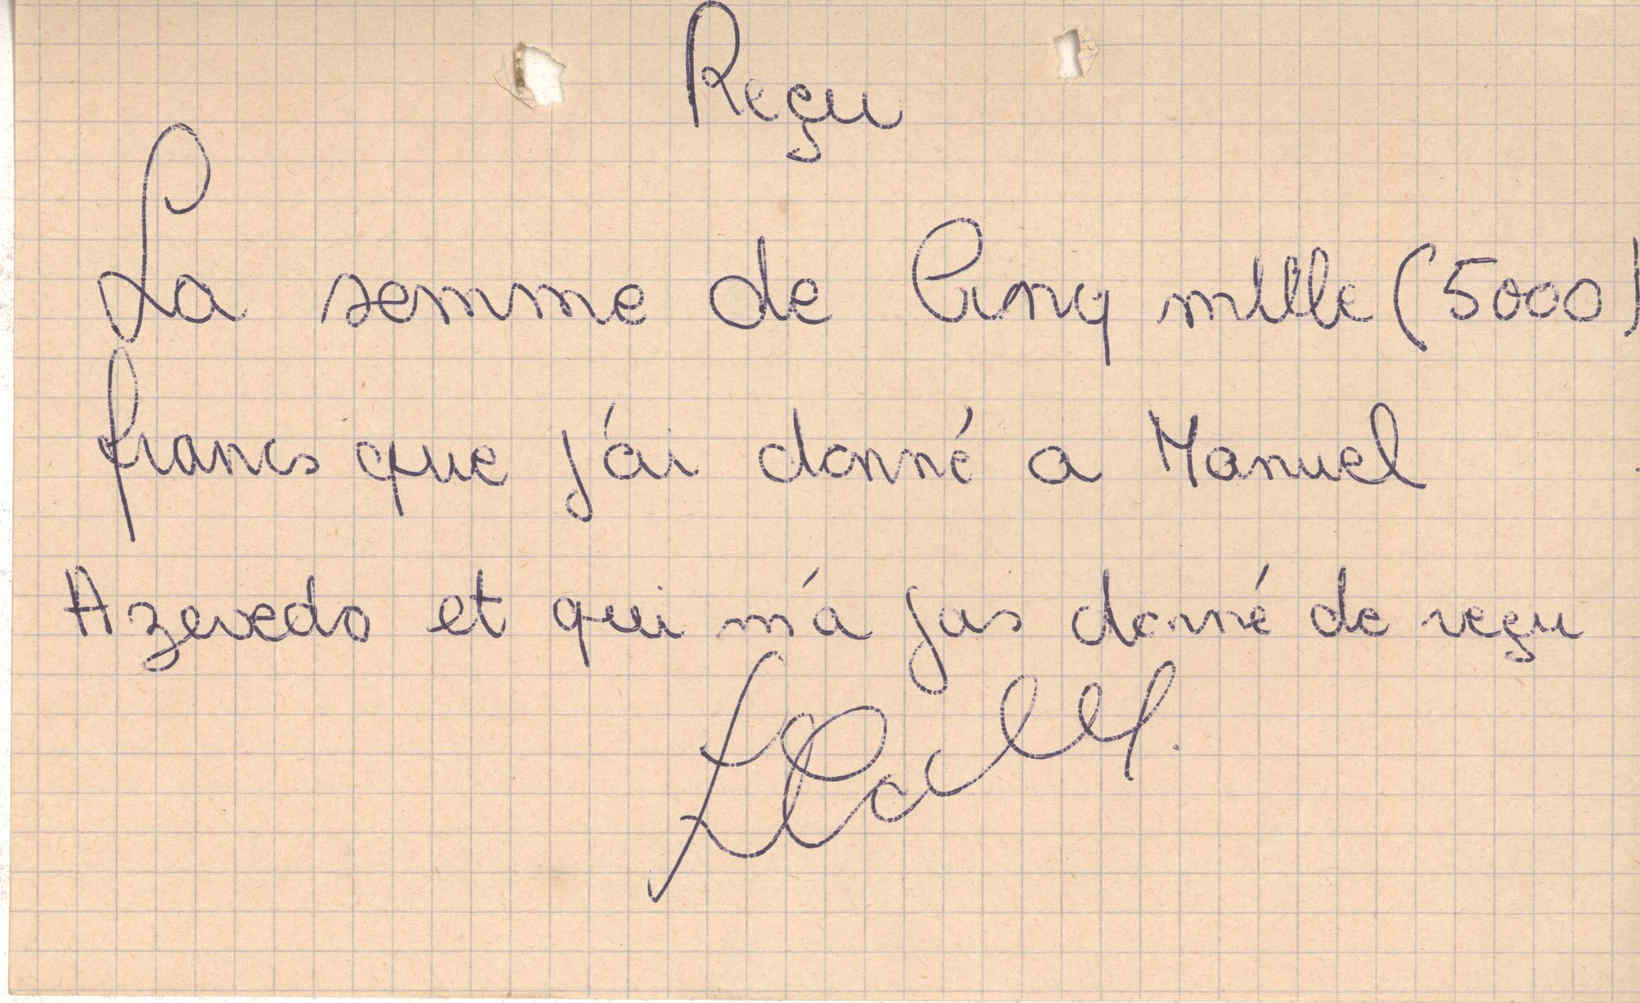 Reçu
La somme de Cinq mille (5000)
francs que j'ai donné a Manuel
Azevedo et qui m'a pas donné de reçu